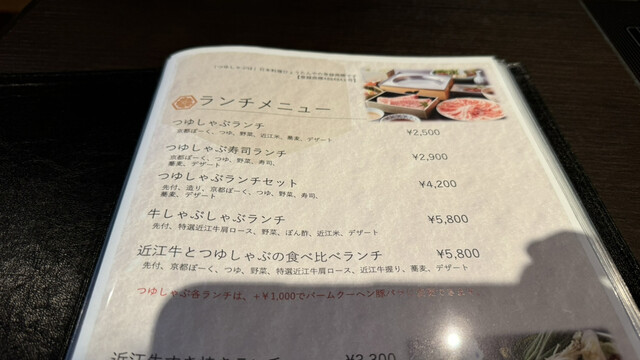 ランチメニュー
つゆしゃぶランチ ¥2,500
京都ぽーく、つゆ、野菜、近江米、蕎麦、デザート
つゆしゃぶ寿司ランチ ¥2,900
京都ぽーく、つゆ、野菜、寿司、
蕎麦、デザート
つゆしゃぶランチセット ¥4,200
先付、造り、京都ぽーく、つゆ、野菜、寿司、
蕎麦、デザート
牛しゃぶしゃぶランチ ¥5,800
先付、特選近江牛肩ロース、野菜、ぽん酢、近江米、デザート
近江牛とつゆしゃぶの食べ比べランチ ¥5,800
先付、京都ぽーく、つゆ、野菜、特選近江牛肩ロース、近江牛握り、蕎麦、デザート
つゆしゃぶ各ランチは、+¥1,000でバームクーヘン豚
近江牛すき焼きランチ ¥3,300